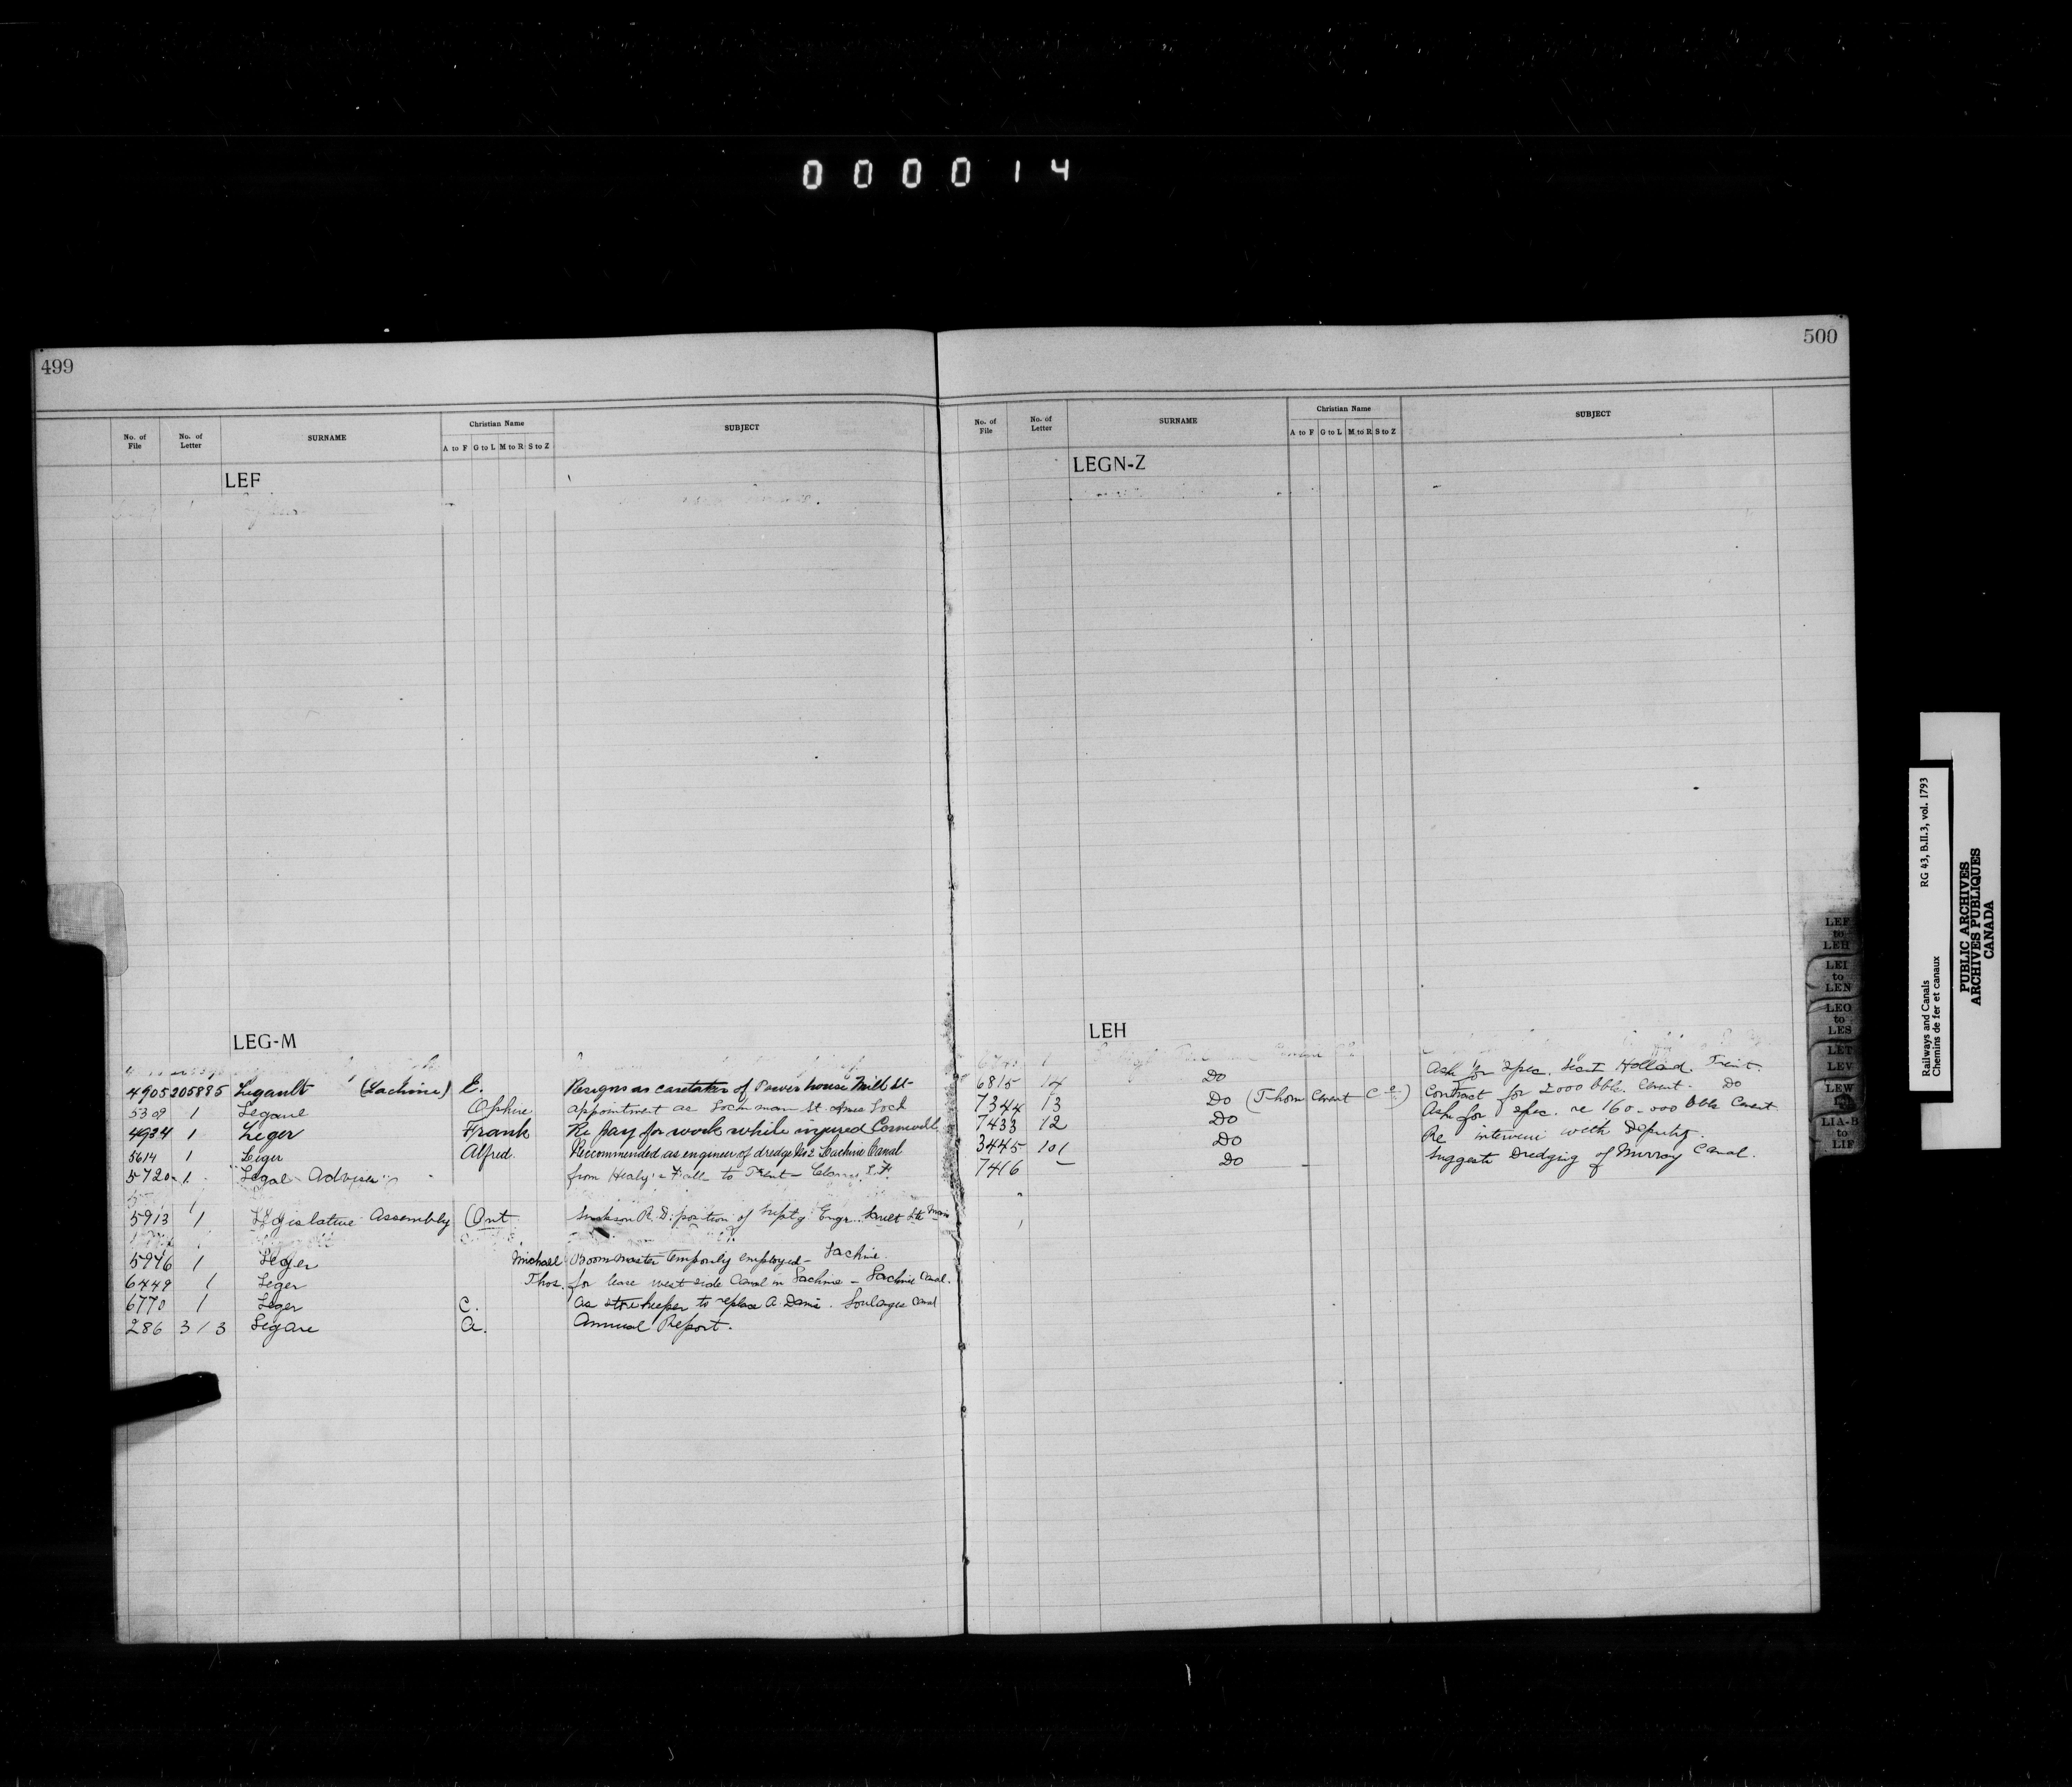 000014
499
No. of File No. of Letter SURNAME Christian Name A to F G to L M to R S to Z SUBJECT
LEF
LEG-M
4905 205885 Legault (Lachine) E. Resigns as caretaker of Power house Mill St
5309 1 Legare appointment as Lockman St. Anns Lock
4934 1 Leger Frank Re pay for work while injured Cornwall
5614 1 Leger Alfred Recommended as engineer of dredge No 2 Lachine Canal
5720 1 Legal Adviser from Healy's Falls to Trent
5913 1 Legislative Assembly (Ont R. D. position of Supt'g Engr. Sault Ste Marie
5976 1 Leger Michael Boommaster temporily employed - Lachine
6449 1 Leger Thos. for lease west side Canal in Lachine - Lachine Canal.
6770 1 Leger C. as storekeeper to replace A. Soulanges Canal
286 313 Legare A. Annual Report.
500
No. of File No. of Letter SURNAME Christian Name A to F G to L M to R S to Z SUBJECT
LEGN-Z
LEH
6815 14 Do Ask for spec. Holland. Trent.
7344 13 Do (Thorn Cement Co) Contract for 2000 bbls. Cement. Do
7433 12 Do Ask for spec. re 160-000 bbls Cement
3445 101 Do Re interview with Deputy.
7416 - Do Suggests Dredging of Murray Canal.
LEF to LEH
LEI to LEN
LEO to LES
LET
LEV
LEW
LIA-B to LIF
Railways and Canals RG 43, B.II.3, vol. 1793
Chemins de fer et canaux
PUBLIC ARCHIVES
ARCHIVES PUBLIQUES
CANADA